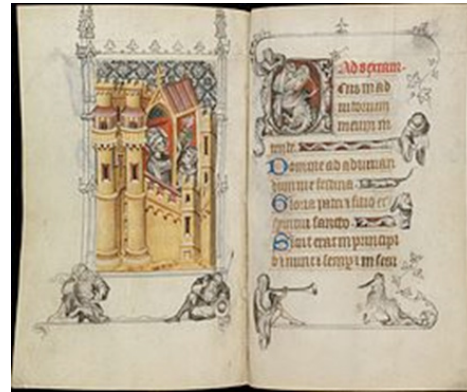 Ad sextam.
Deus in ad
iutorium
meum in
tende.
Domine ad adiuuan
dum me festina.
Gloria patri et filio et
spiritui sancto.
Sicut erat in principi
o et nunc et semp in secu